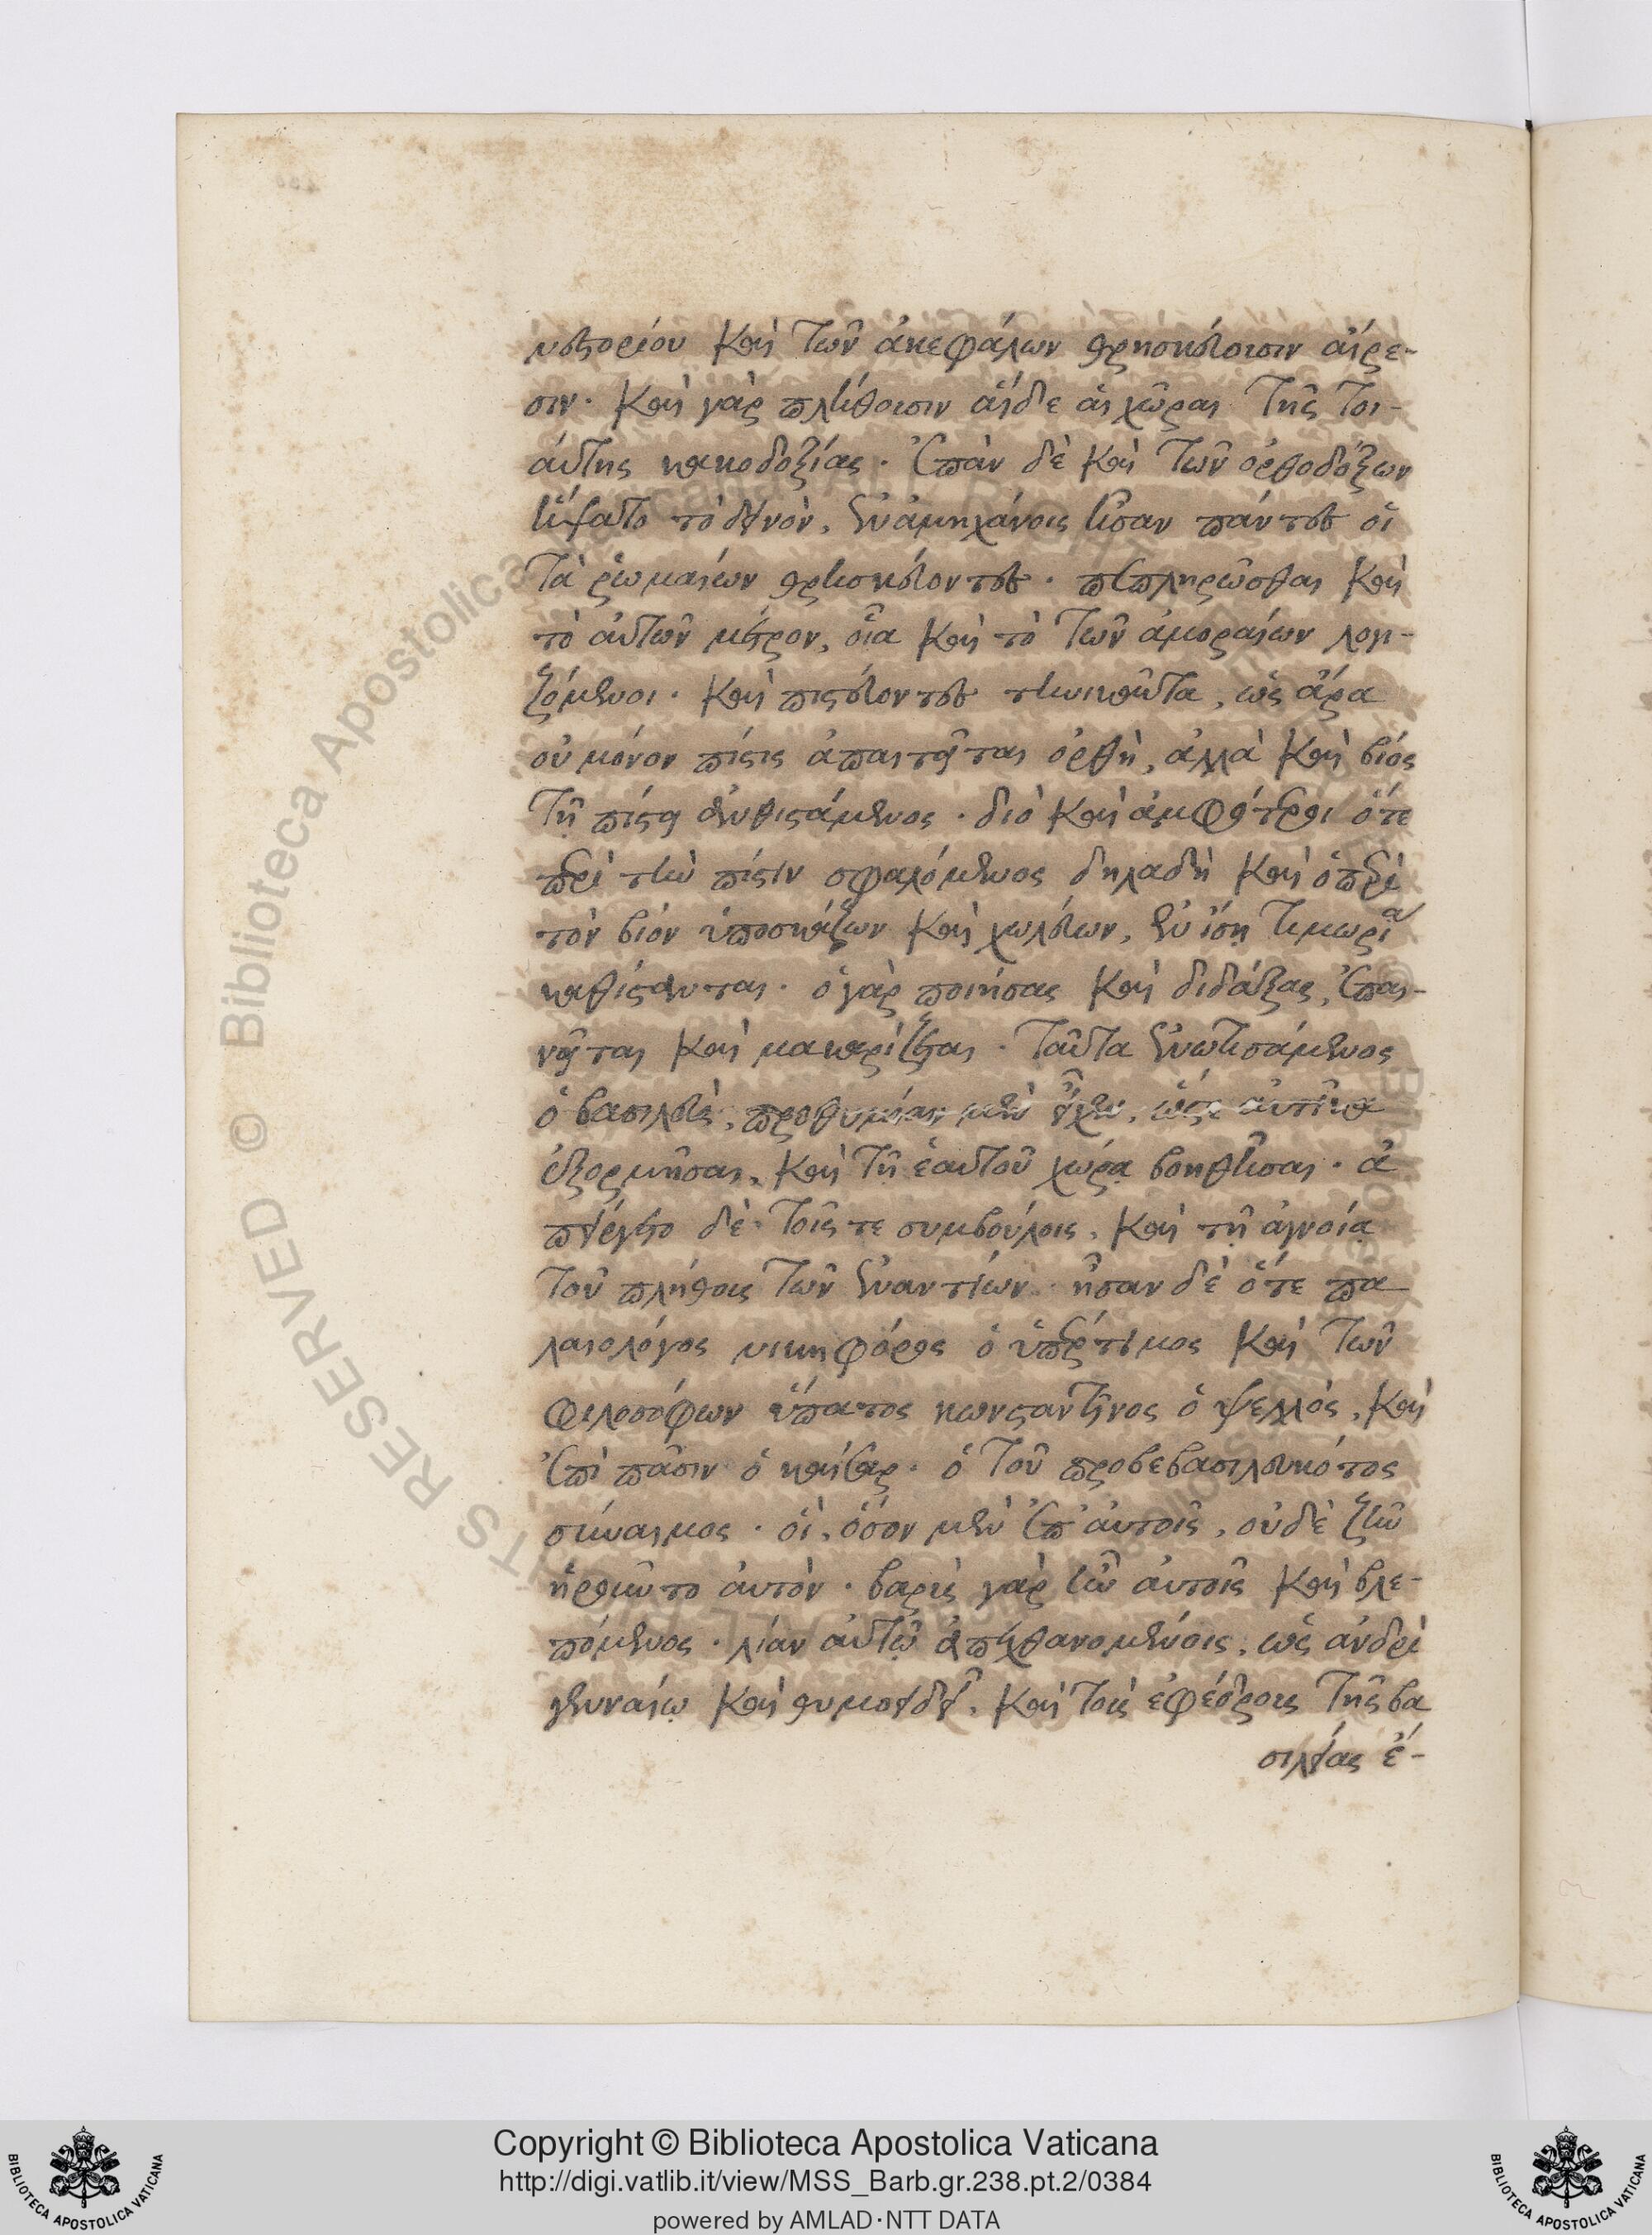 νεστορίου καὶ τῶν ἀκεφάλων θρησκεύουσιν αἵρε-
σιν. καὶ γὰρ πλήθουσιν αἵδε αἱ χῶραι τῆς τοι-
αύτης κακοδοξίας. ἐπὰν δὲ καὶ τῶν ὀρθοδόξων
ἥψατο τὸ δεινὸν, ἐν ἀμηχάνοις ἦσαν πάντες οἱ
τὰ ῥωμαίων θρησκεύοντες. πεπληρῶσθαι καὶ
τὸ αὐτῶν μέτρον, οἷα καὶ τὸ τῶν ἀμοραίων λογι-
ζόμενοι. καὶ πιστεύοντες τηνικαῦτα, ὡς ἄρα
οὐ μόνον πίστις ἀπαιτεῖται ὀρθὴ, ἀλλὰ καὶ βίος
τῇ πίστει ἀνθιστάμενος. διὸ καὶ ἀμφότεροι ὅτε
περὶ τὴν πίστιν σφαλόμενος δηλαδὴ καὶ ὁ περὶ
τὸν βίον ὑποσκάζων καὶ χωλεύων, ἐν ἴσῃ τιμωρίᾳ
καθίστανται. ὁ γὰρ ποιήσας καὶ διδάξας, ἐπαι-
νεῖται καὶ μακαρίζεται. ταῦτα ἐνωτισάμενος
ὁ βασιλεὺς, προθυμίαν μὲν εἶχεν, ὥστε αὐτίκα
ἐξορμῆσαι, καὶ τῇ ἑαυτοῦ χώρᾳ βοηθῆσαι. ἀ
πείργετο δὲ τοῖς τε συμβούλοις, καὶ τῇ ἀγνοίᾳ
τοῦ πλήθους τῶν ἐναντίων. ἦσαν δὲ ὅτε πα
λαιολόγος νικηφόρος ὁ ὑπέρτιμος καὶ τῶν
φιλοσόφων ὕπατος κωνσταντῖνος ὁ ψελλὸς, καὶ
ἐπὶ πᾶσιν ὁ καῖσαρ. ὁ τοῦ προβεβασιλευκότος
σύναιμος. οἳ, ὅσον μὲν ἐπ' αὐτοῖς, οὐδὲ ζῆν
ᾑροῦντο αὐτόν. βαρὺς γὰρ ἦν αὐτοῖς καὶ βλε-
πόμενος. λίαν αὐτῷ ἀπεχθανομένοις, ὡς ἀνδρὶ
γενναίῳ καὶ θυμοειδεῖ, καὶ τοῖς ἐφέδροις τῆς βα
σιλείας ἐ-
Copyright © Biblioteca Apostolica Vaticana
http://digi.vatlib.it/view/MSS_Barb.gr.238.pt.2/0384
powered by AMLAD·NTT DATA
BIBLIOTECA APOSTOLICA VATICANA
BIBLIOTECA APOSTOLICA VATICANA